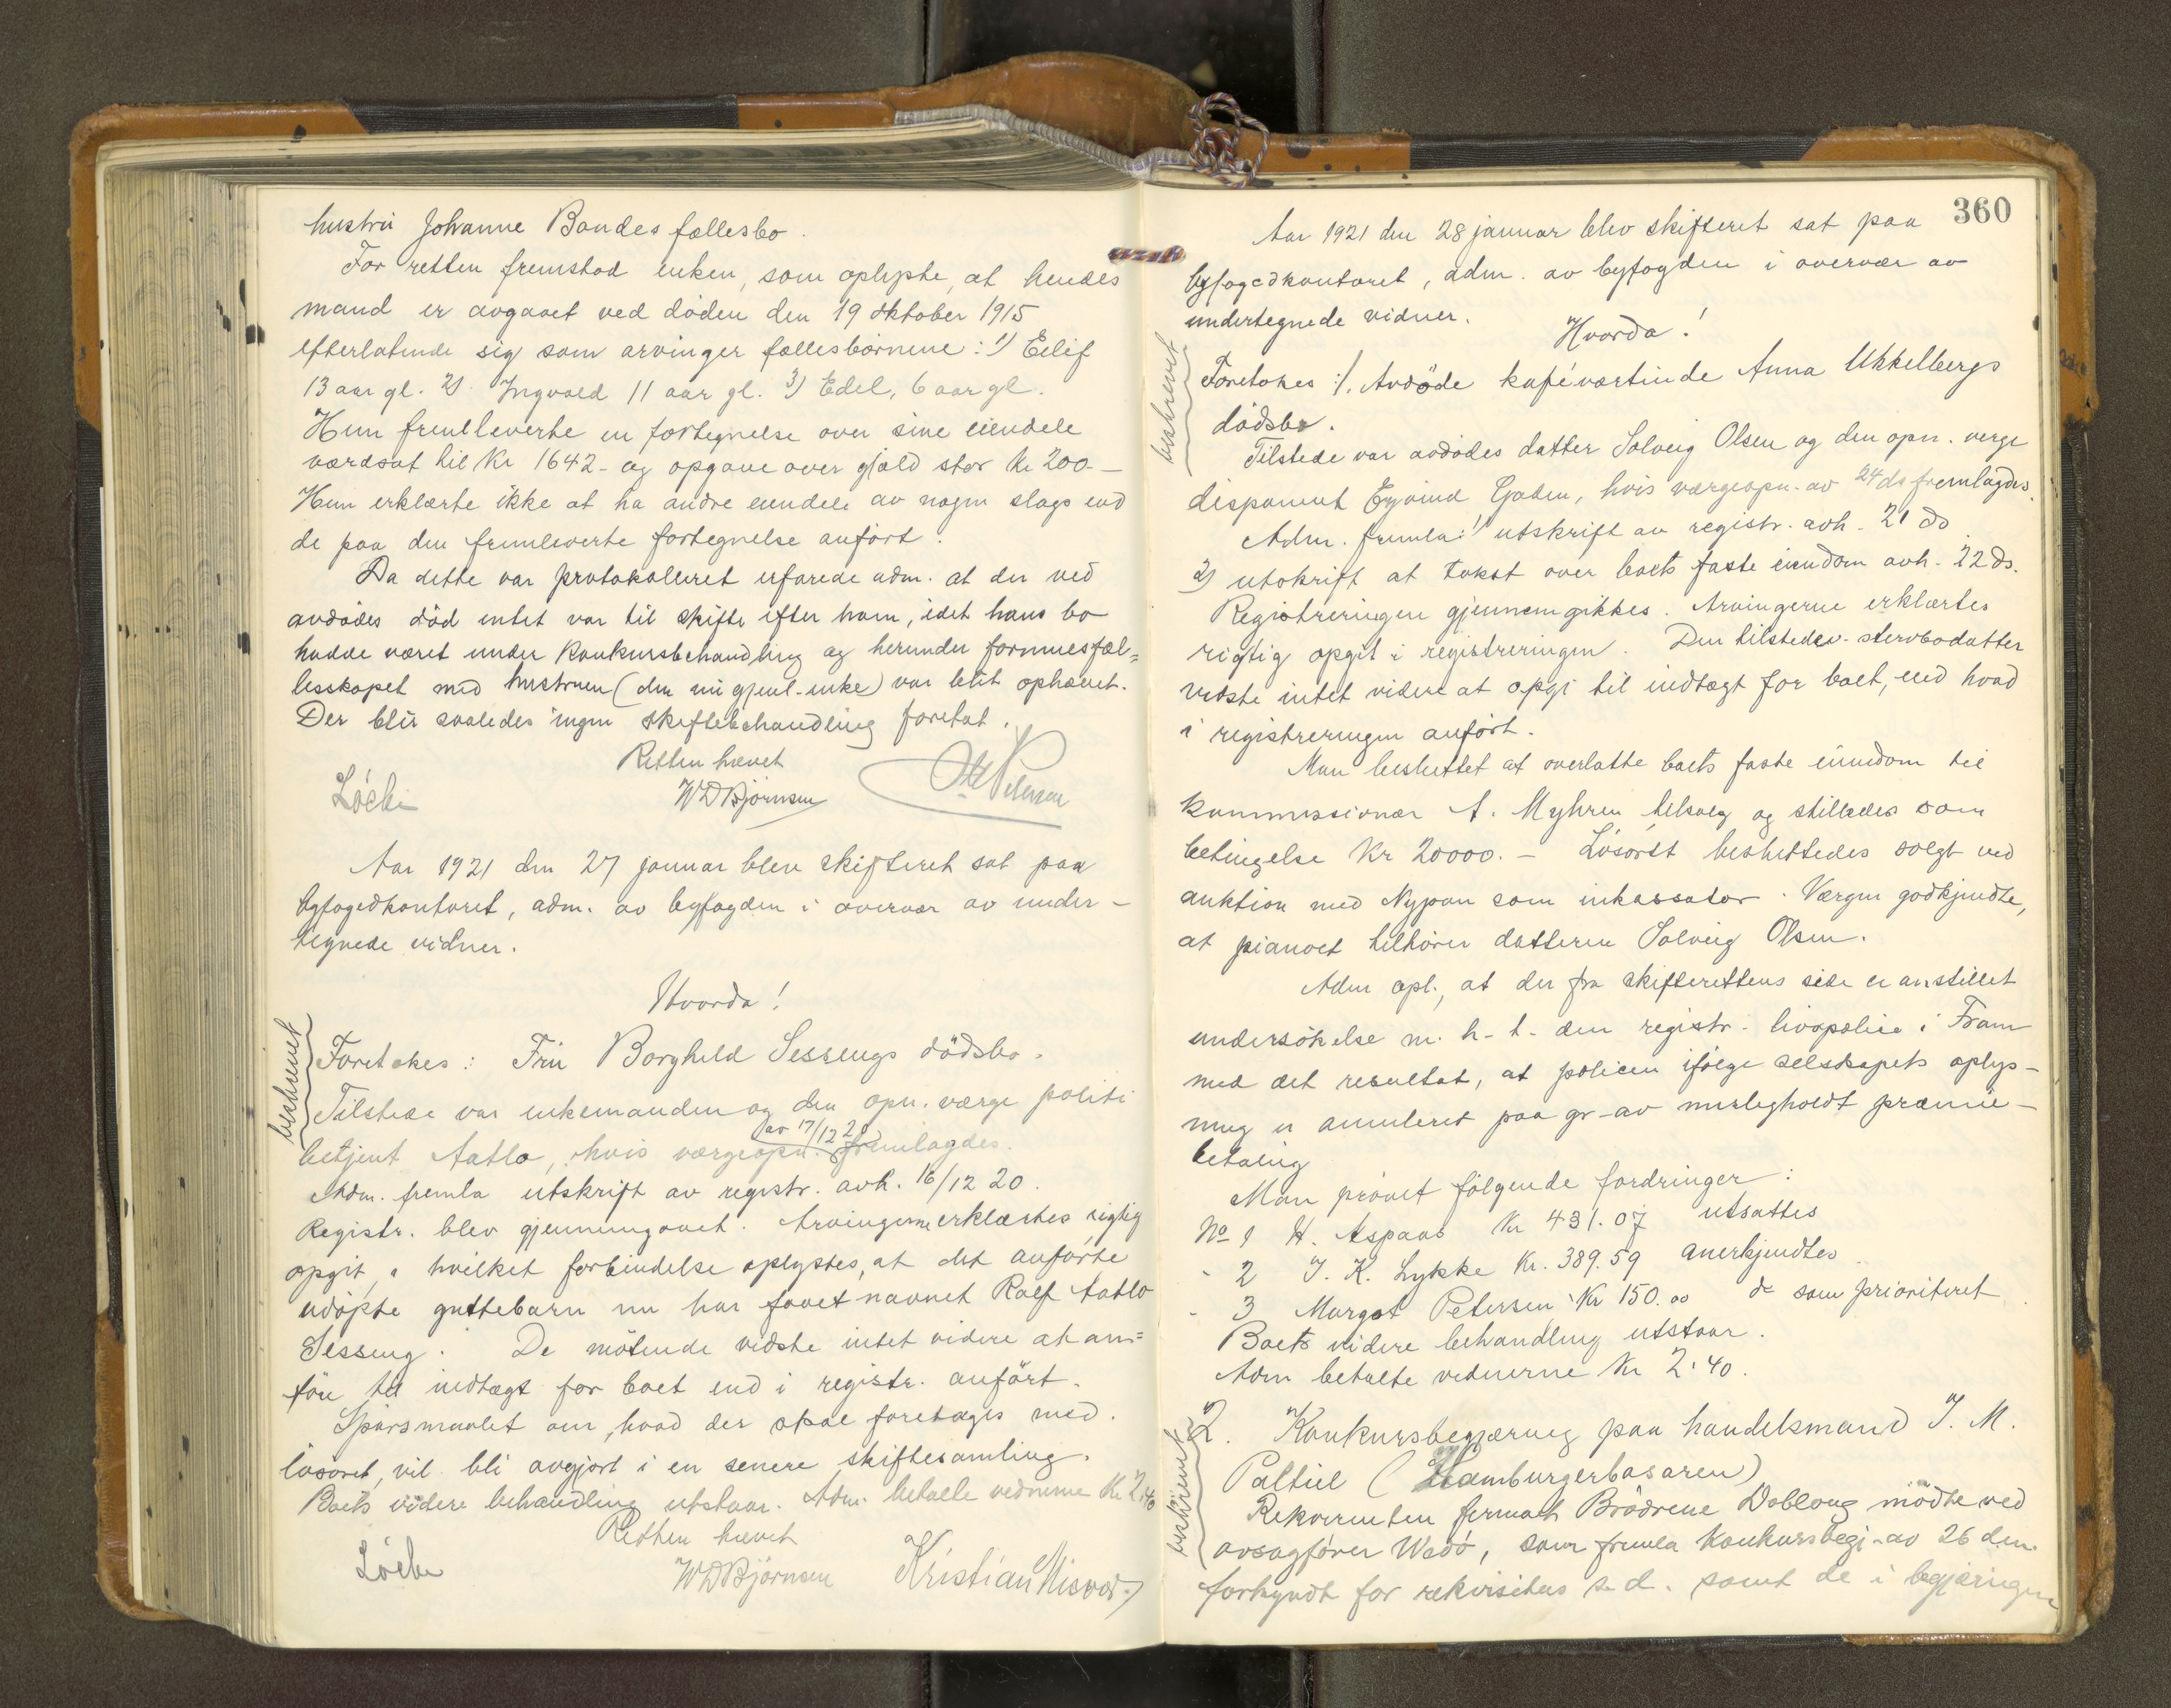 hustru Johanne Bandes fællesbo.
For retten fremstod enken, som oplyste, at hendes
mand er avgaaet ved døden den 19 oktober 1915
efterlatende sig som arvinger fællesbørnene: 1) Eilif
13 aar gl. 2) Ingvald 11 aar gl. 3) Edel, 6 aar gl.
Hun fremleverte en fortegnelse over sine eiendele
værdsat til Kr 1642- og opgave over gjæld stor Kr 200.-
Hun erklærte ikke at ha andre eiendele av nogen slags end
de paa den fremleverte fortegnelse anført.
Da dette var protokolleret erfarede adm. at der ved
avdødes død intet var til skifte efter ham, idet hans bo
hadde været under konkursbehandling og herunder formuesfæl=
lesskapet med hustruen (den nu gjenl. enke) var blit ophævet.
Der blir saaledes ingen skiftebehandling foretat.
Retten hævet
Löchen WDBjörnsen Petersen
Aar 1921 den 27 januar blev skifteret sat paa
byfogedkontoret, adm. av byfogden i overvær av under-
tegnede vidner.
Hvorda!
beskrevet
Foretokes: Fru Borghild Sessengs dödsbo.
Tilstede var enkemanden og den opn. værge politi
betjent Aatlo, hvis værgeopn. av 17/12 20 fremlagdes.
Adm. fremla utskrift av registr. avh. 16/12 20.
Registr. blev gjennemgaaet. Arvingerne erklærtes rigtig
opgit, i hvilket forbindelse oplystes, at det anførte
udøpte guttebarn nu har faaet navnet Ralf Aatlo
Sesseng. De mötende vidste intet videre at an=
före til indtægt for boet end i registr. anfört.
Spörsmaalet om, hvad der skal foretages med
lösöret, vil bli avgjort i en senere skiftesamling.
Boets videre behandling utstaar. Adm. betalte vidnerne Kr 2.40
Retten hævet
Löchen WDBjörnsen Kristian Misvær
360
Aar 1921 den 28 januar blev skifteret sat paa
byfogedkontoret, adm. av byfogden i overvær av
undertegnede vidner.
Hvorda!
beskrevet
Foretokes: 1. Avdöde kafévertinde Anna Ukkelbergs
dödsbo.
Tilstede var avdødes datter Solveig Olsen og den opn. verge
disponent Eyvind Gaden, hvis værgeopn. av 24 ds fremlagdes.
Adm. fremla: 1) utskrift av registr. avh. 21 ds
2) utskrift at takst over boets faste eiendom avh. 22 ds.
Registreringen gjennemgikkes. Arvingerne erklærtes
rigtig opgit i registreringen. Den tilstedev. stervbodatter
vidste intet videre at opgi til indtægt for boet, end hvad
i registreringen anfört.
Man besluttet at overlatte boets faste eiendom til
kommissionær A. Myhren tilsalg og stilledes som
betingelse Kr 20000.- Lösöret besluttedes solgt ved
auktion med Nypan som inkassator. Værgen godkjendte,
at pianoet tilhörer datteren Solveig Olsen.
Adm opl., at der fra skifterettens side er anstillet
undersökelse m. h. t. den registr. livspolise i Fram
med det resultat, at policen ifölge selskapets oplys-
ning er annuleret paa gr. av misligholdt præmie-
betaling
Man prövet fölgende fordringer:
No 1 H. Aspaas Kr 431.07 utsattes
- 2 J. K. Lykke Kr. 389.59 anerkjendtes
- 3 Margot Petersen Kr 150.00 do som prioriteret
Boets videre behandling utstaar.
Adm betalte vidnerne Kr 2.40.
beskrevet
2. Konkursbegjæring paa handelsmand J. M.
Paltiel (Hamburgerbasaren)
Rekvirenten firmaet Brödrene Dobloug mödte ved
avsagförer Wadö, som fremla konkursbegj. av 26 dm.
forkyndt for rekvisitus s. d. samt de i begjæringen